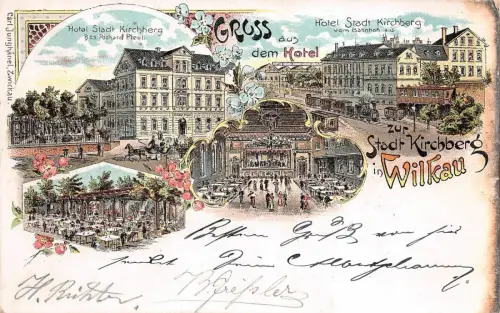 Hotel Stadt Kirchberg
Bes. Richard Plessl
Hotel Stadt Kirchberg
vom Bahnhof aus
Gruss aus
dem Hotel
zur
Stadt Kirchberg
in Wilkau
Carl Junghänel, Zwickau.
Besten Gruß von hier
sendet Dein
H. Richter